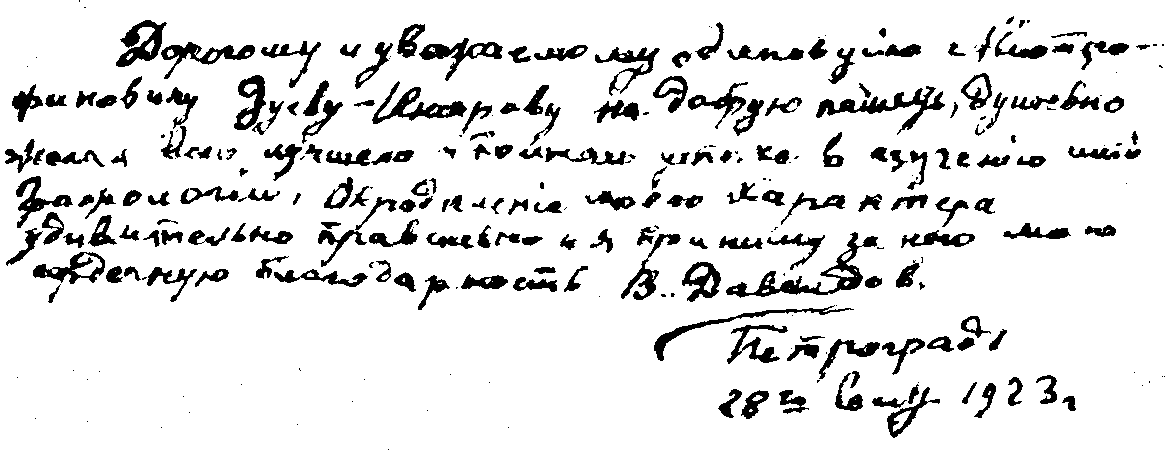 Дорогому и уважаемому
Зуеву-Инсарову на добрую память, душевно
желая Вам лучшего успеха в изучении
графологии, Определение моего характера
удивительно правильно и я приношу за него мою
сердечную благодарность В. Давыдов.
Петроград
28го 1923 г